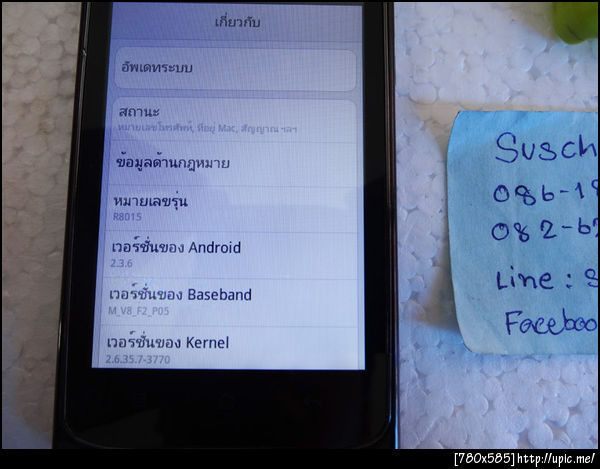 เกี่ยวกับ
อัพเดทระบบ
สถานะ
หมายเลขโทรศัพท์, ที่อยู่ Mac, สัญญาณ ฯลฯ
ข้อมูลด้านกฎหมาย
หมายเลขรุ่น
R8015
เวอร์ชั่นของ Android
2.3.6
เวอร์ชั่นของ Baseband
M_V8_F2_P05
เวอร์ชั่นของ Kernel
2.6.35.7-3770
Susch
086-18
082-62
Line : S
Faceboo
[780x585] http://upic.me/